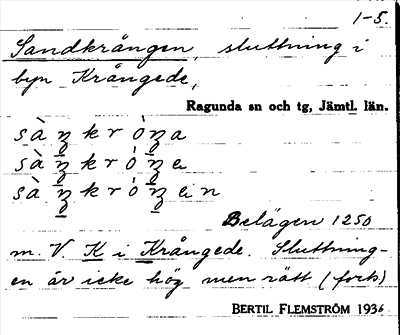 1-5.
Sandkrången, sluttning i
byn Krångede,
Ragunda sn och tg, Jämtl. län.
Belägen 1250
m. V. K i Krångede. Sluttning-
en är icke hög men rätt (forts)
BERTIL FLEMSTRÖM 1936